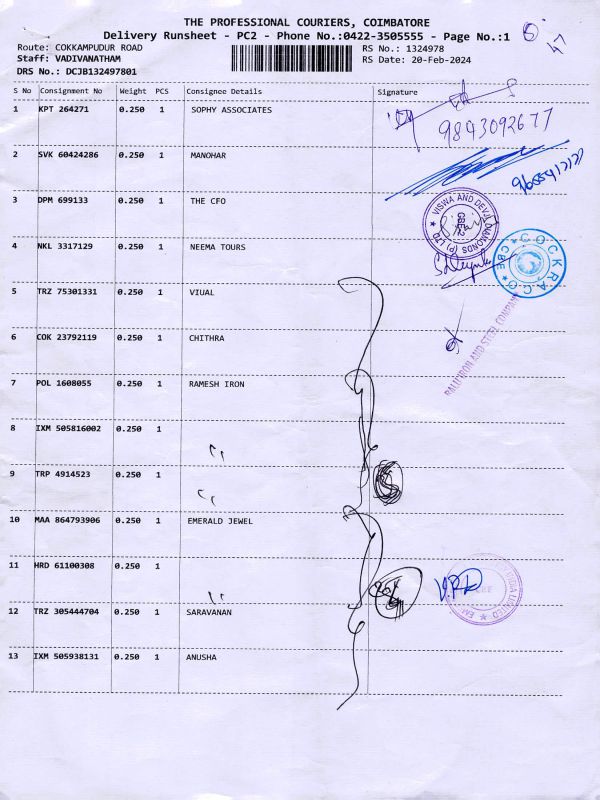 THE PROFESSIONAL COURIERS, COIMBATORE
Delivery Runsheet - PC2 - Phone No.:0422-3505555 - Page No.:1
47
Route: COKKAMPUDUR ROAD RS No.: 1324978
Staff: VADIVANATHAM RS Date: 20-Feb-2024
DRS No.: DCJB132497801
S No Consignment No Weight PCS Consignee Details Signature
1 KPT 264271 0.250 1 SOPHY ASSOCIATES
9843092677
2 SVK 60424286 0.250 1 MANOHAR
3 DPM 699133 0.250 1 THE CFO
VISWA AND DEVJI DIAMONDS (P) LTD
CBE-2
4 NKL 3317129 0.250 1 NEEMA TOURS
COCKRACO
CBE
5 TRZ 75301331 0.250 1 VIUAL
6 COK 23792119 0.250 1 CHITHRA
IRON AND STEEL COMPANY
7 POL 1608055 0.250 1 RAMESH IRON
8 IXM 505816002 0.250 1
9 TRP 4914523 0.250 1
10 MAA 864793906 0.250 1 EMERALD JEWEL
11 HRD 61100308 0.250 1
12 TRZ 305444704 0.250 1 SARAVANAN
13 IXM 505938131 0.250 1 ANUSHA